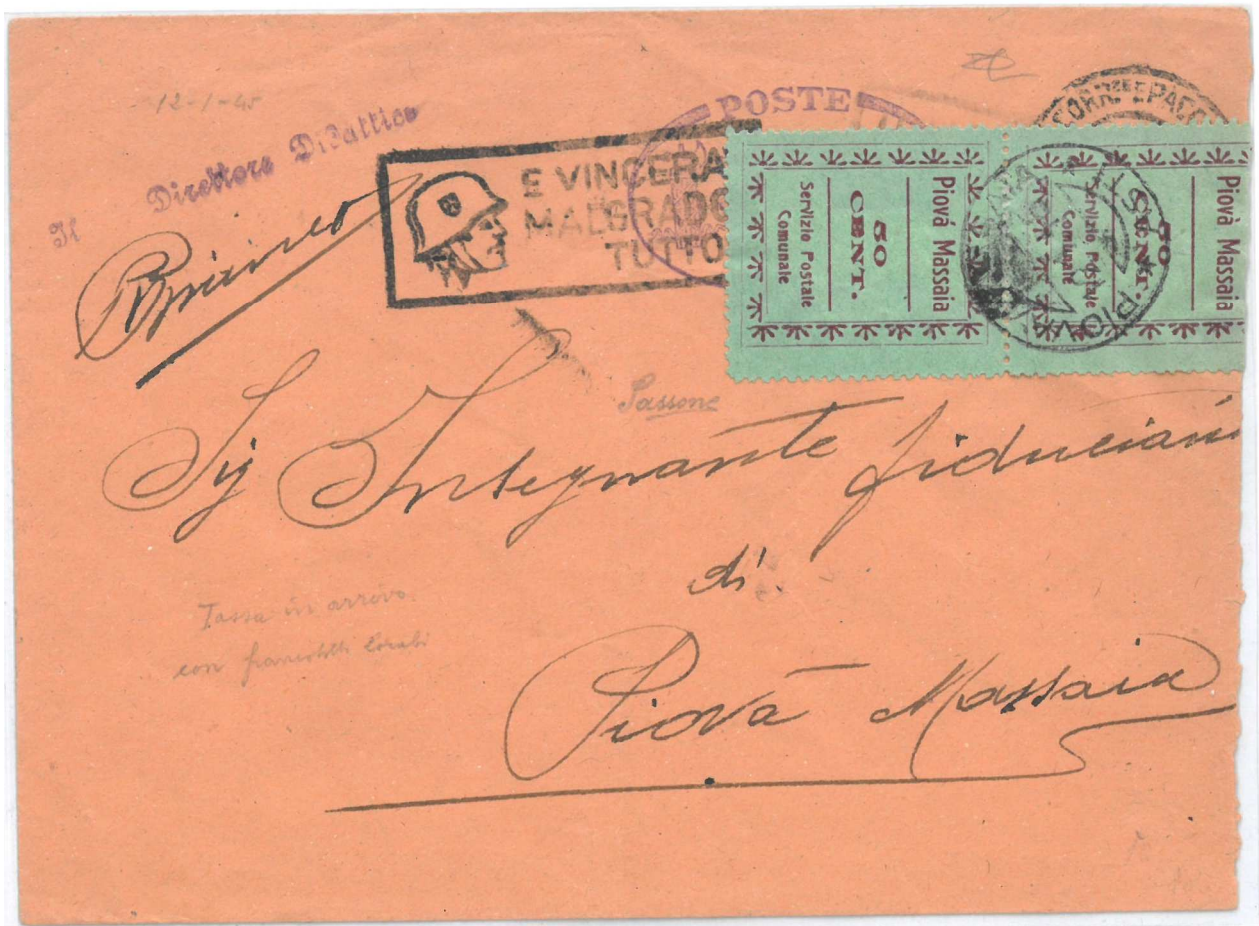 12-1-45
Il Direttore Didattico
POSTE
CORR. E PACC
E VINCERA
MALGRADO
TUTTO
Piovà Massaia
50
CENT.
Servizio Postale
Comunale
Piovà Massaia
50
CENT.
Servizio Postale
Comunale
PIOV
Sassone
Sig Insegnante fiduciari
di
Piovà Massaia
Tassa in arrivo
con francobolli locali